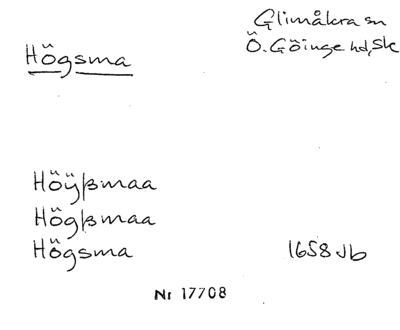 Högsma
Glimåkra sn
Ö. Göinge hd, Sk
Höÿßmaa
Högßmaa
Högsma 1658 Jb
Nr 17708